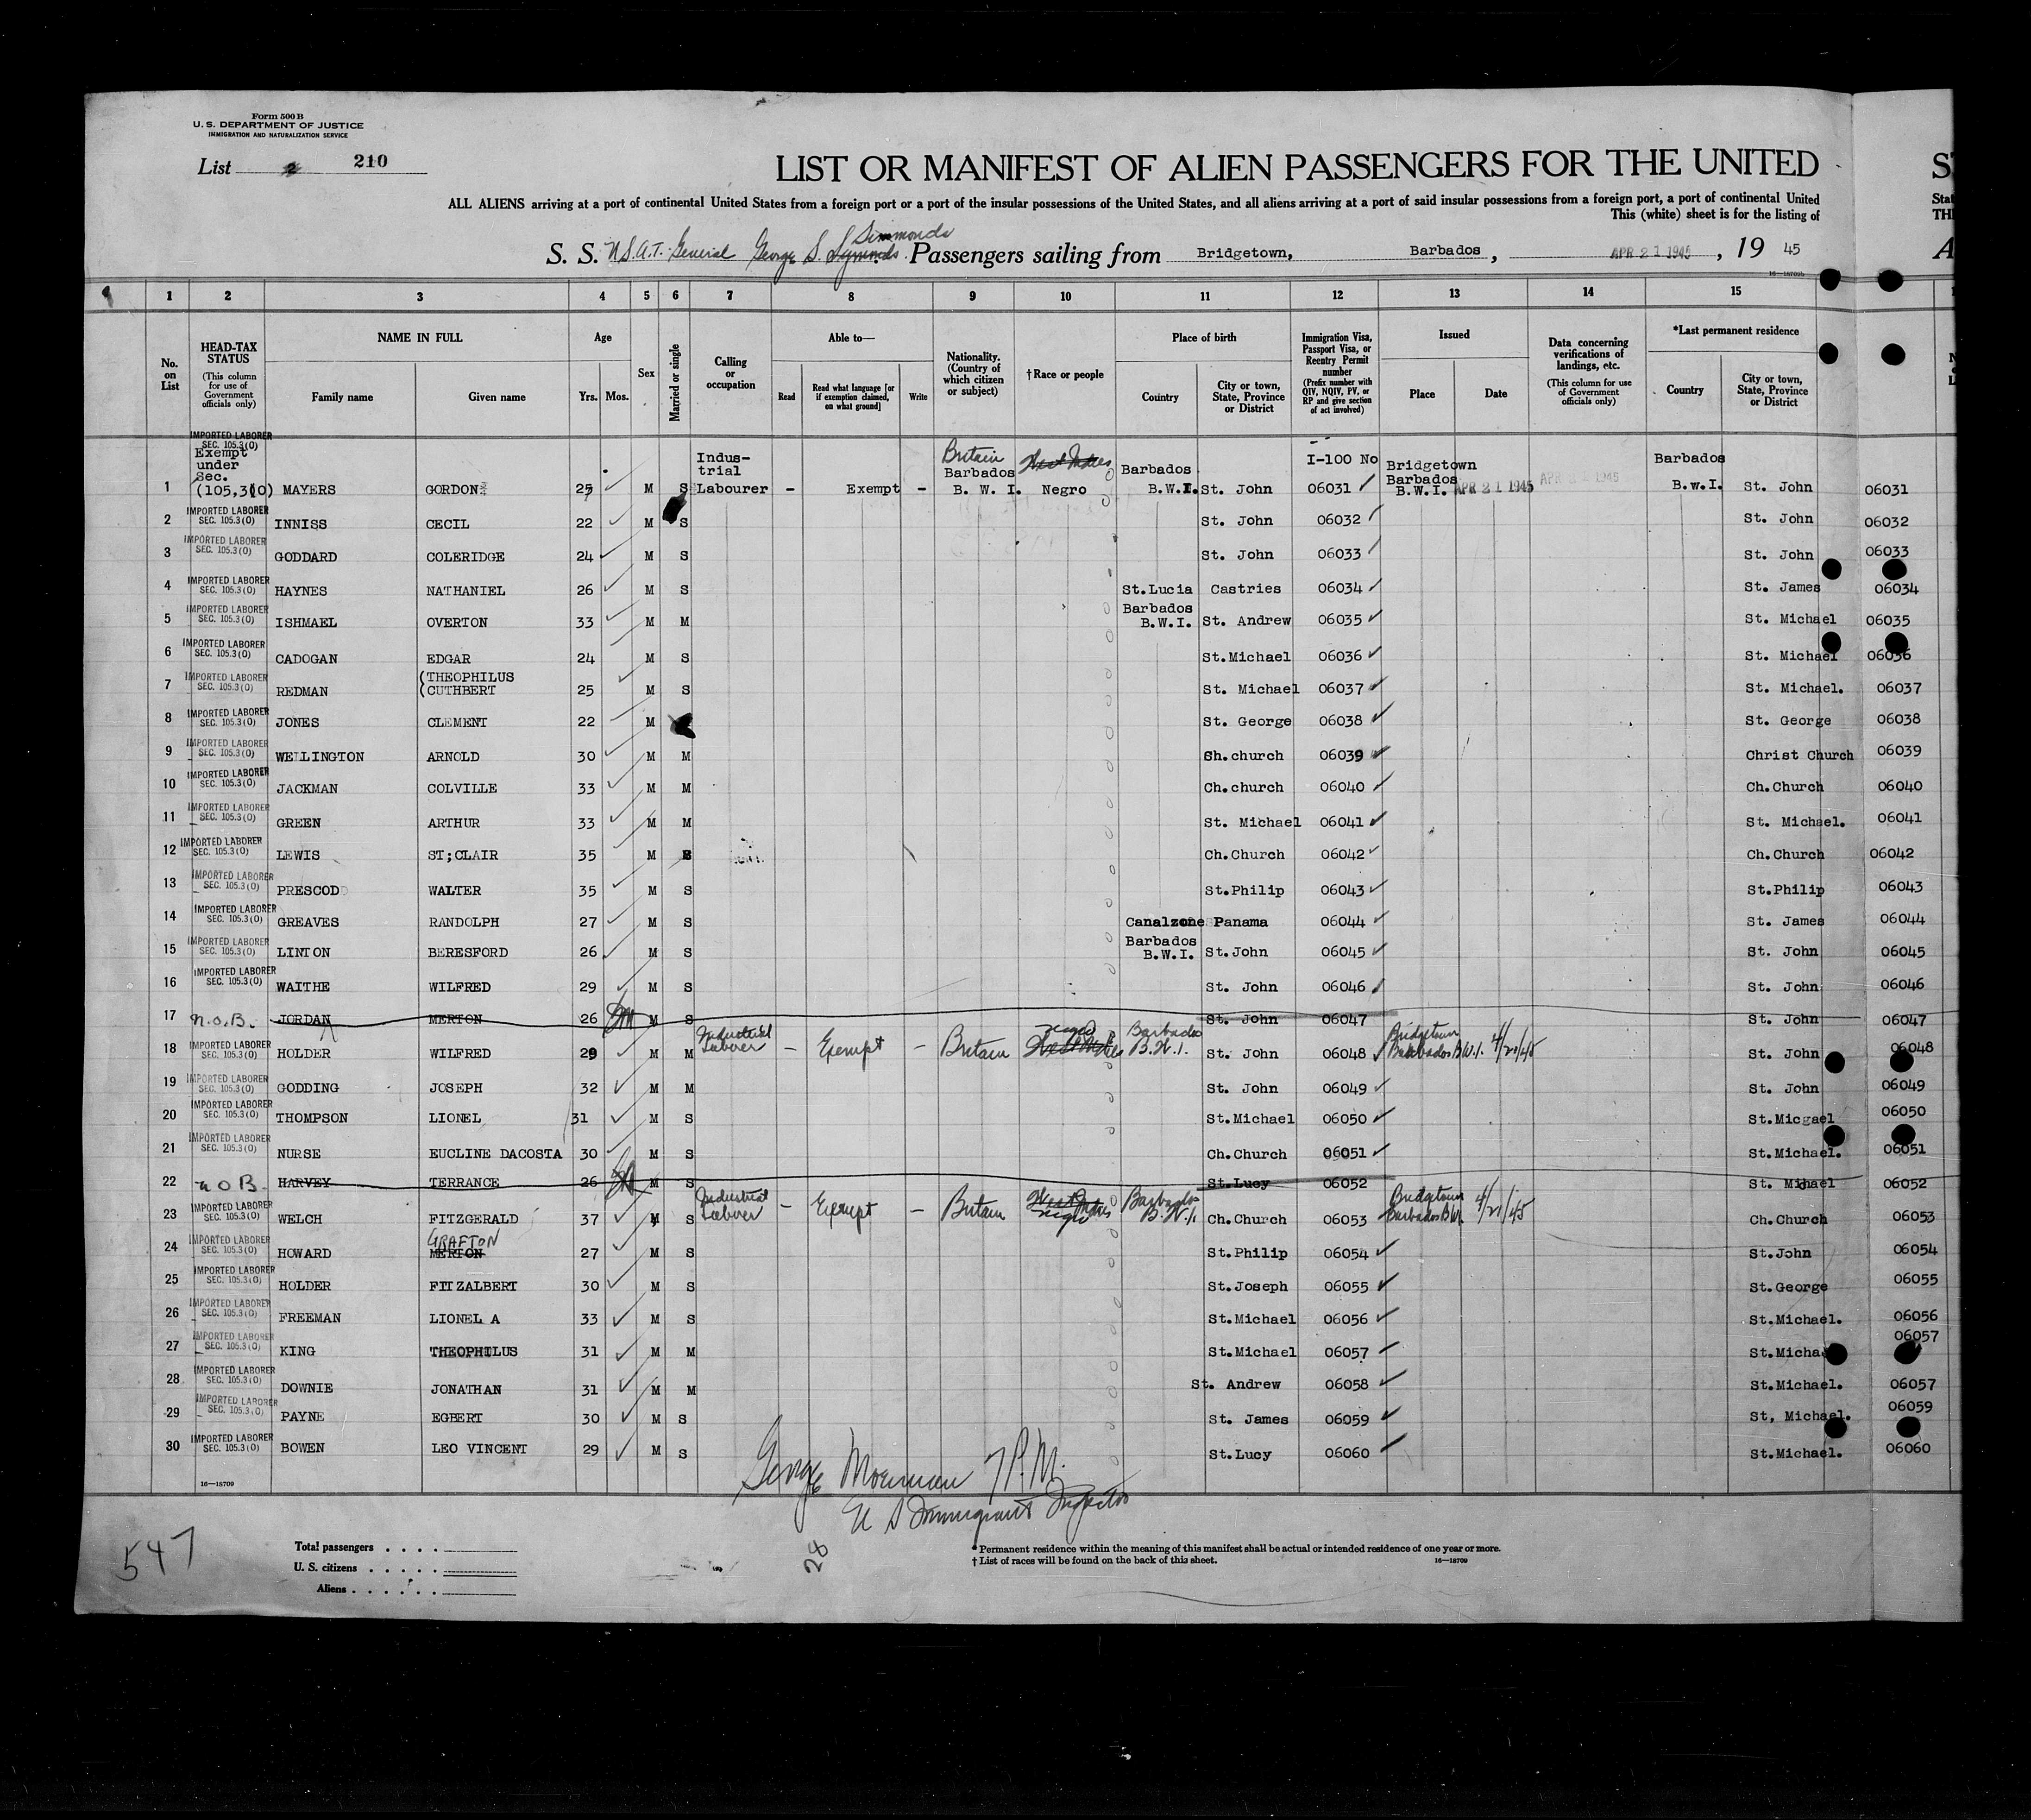 Form 500 B
U. S. DEPARTMENT OF JUSTICE
IMMIGRATION AND NATURALIZATION SERVICE
List 2 210
LIST OR MANIFEST OF ALIEN PASSENGERS FOR THE UNITED
ALL ALIENS arriving at a port of continental United States from a foreign port or a port of the insular possessions of the United States, and all aliens arriving at a port of said insular possessions from a foreign port, a port of continental United
This (white) sheet is for the listing of
Simmonds
S. S. U.S.A.T. General George S. Symonds. Passengers sailing from Bridgetown, Barbados, APR 21 1945, 19 45
16—18709b
1 2 3 4 5 6 7 8 9 10 11 12 13 14 15
No. on List
HEAD-TAX STATUS (This column for use of Government officials only)
NAME IN FULL Family name Given name
Age Yrs. Mos.
Sex
Married or single
Calling or occupation
Able to— Read Read what language [or if exemption claimed, on what ground] Write
Nationality. (Country of which citizen or subject)
†Race or people
Place of birth Country City or town, State, Province or District
Immigration Visa, Passport Visa, or Reentry Permit number (Prefix number with QIV, NQIV, PV, or RP and give section of act involved)
Issued Place Date
Data concerning verifications of landings, etc. (This column for use of Government officials only)
*Last permanent residence Country City or town, State, Province or District
IMPORTED LABORER SEC. 105.3(0)
Exempt under Sec. (105,3(0)
1 MAYERS GORDON 25 M S Industrial Labourer - Exempt - Britain Barbados B. W. I. West Indies Negro Barbados B.W.I. St. John I-100 No 06031 Bridgetown Barbados B.W.I. APR 21 1945 APR 21 1945 Barbados B.w.I. St. John 06031
2 IMPORTED LABORER SEC. 105.3(0) INNISS CECIL 22 M S St. John 06032 St. John 06032
3 IMPORTED LABORER SEC. 105.3(0) GODDARD COLERIDGE 24 M S St. John 06033 St. John 06033
4 IMPORTED LABORER SEC. 105.3(0) HAYNES NATHANIEL 26 M S St.Lucia Castries 06034 St. James 06034
5 IMPORTED LABORER SEC. 105.3(0) ISHMAEL OVERTON 33 M M Barbados B.W.I. St. Andrew 06035 St. Michael 06035
6 IMPORTED LABORER SEC. 105.3(0) CADOGAN EDGAR 24 M S St.Michael 06036 St. Michael 06036
7 IMPORTED LABORER SEC. 105.3(0) REDMAN (THEOPHILUS (CUTHBERT 25 M S St. Michael 06037 St. Michael. 06037
8 IMPORTED LABORER SEC. 105.3(0) JONES CLEMENT 22 M St. George 06038 St. George 06038
9 IMPORTED LABORER SEC. 105.3(0) WELLINGTON ARNOLD 30 M M Ch.church 06039 Christ Church 06039
10 IMPORTED LABORER SEC. 105.3(0) JACKMAN COLVILLE 33 M M Ch.church 06040 Ch.Church 06040
11 IMPORTED LABORER SEC. 105.3(0) GREEN ARTHUR 33 M M St. Michael 06041 St. Michael. 06041
12 IMPORTED LABORER SEC. 105.3(0) LEWIS ST;CLAIR 35 M S Ch.Church 06042 Ch.Church 06042
13 IMPORTED LABORER SEC. 105.3(0) PRESCOD WALTER 35 M S St.Philip 06043 St.Philip 06043
14 IMPORTED LABORER SEC. 105.3(0) GREAVES RANDOLPH 27 M S Canalzone Panama 06044 St. James 06044
15 IMPORTED LABORER SEC. 105.3(0) LINTON BERESFORD 26 M S Barbados B.W.I. St.John 06045 St. John 06045
16 IMPORTED LABORER SEC. 105.3(0) WAITHE WILFRED 29 M S St. John 06046 St. John 06046
17 N.O.B. JORDAN MERTON 26 M S St. John 06047 St. John 06047
18 IMPORTED LABORER SEC. 105.3(0) HOLDER WILFRED 29 M M Industrial Laborer - Exempt - Britain negro West Indies Barbados B.W.I. St. John 06048 Bridgetown Barbados B.W.I. 4/21/45 St. John 06048
19 IMPORTED LABORER SEC. 105.3(0) GODDING JOSEPH 32 M M St. John 06049 St. John 06049
20 IMPORTED LABORER SEC. 105.3(0) THOMPSON LIONEL 31 M S St.Michael 06050 St.Micgael 06050
21 IMPORTED LABORER SEC. 105.3(0) NURSE EUCLINE DACOSTA 30 M S Ch.Church 06051 St.Michael. 06051
22 N O B HARVEY TERRANCE 26 M S St.Lucy 06052 St. Michael 06052
23 IMPORTED LABORER SEC. 105.3(0) WELCH FITZGERALD 37 M S Industrial Laborer - Exempt - Britain West Indies negro Barbados B.W.I. Ch.Church 06053 Bridgetown Barbados BWI. 4/21/45 Ch.Church 06053
24 IMPORTED LABORER SEC. 105.3(0) HOWARD GRAFTON MERTON 27 M S St.Philip 06054 St.John 06054
25 IMPORTED LABORER SEC. 105.3(0) HOLDER FITZALBERT 30 M S St.Joseph 06055 St.George 06055
26 IMPORTED LABORER SEC. 105.3(0) FREEMAN LIONEL A 33 M S St.Michael 06056 St.Michael. 06056
27 IMPORTED LABORER SEC. 105.3(0) KING THEOPHILUS 31 M M St.Michael 06057 St.Micha 06057
28 IMPORTED LABORER SEC. 105.3(0) DOWNIE JONATHAN 31 M M St. Andrew 06058 St.Michael. 06057
29 IMPORTED LABORER SEC. 105.3(0) PAYNE EGBERT 30 M S St. James 06059 St, Michael. 06059
30 IMPORTED LABORER SEC. 105.3(0) BOWEN LEO VINCENT 29 M S St.Lucy 06060 St.Michael. 06060
16—18709
George Moerman
U S Immigrant Inspector
547
28
Total passengers . . . .
U. S. citizens . . . . .
Aliens . . . . . .
* Permanent residence within the meaning of this manifest shall be actual or intended residence of one year or more.
† List of races will be found on the back of this sheet.
16—18709